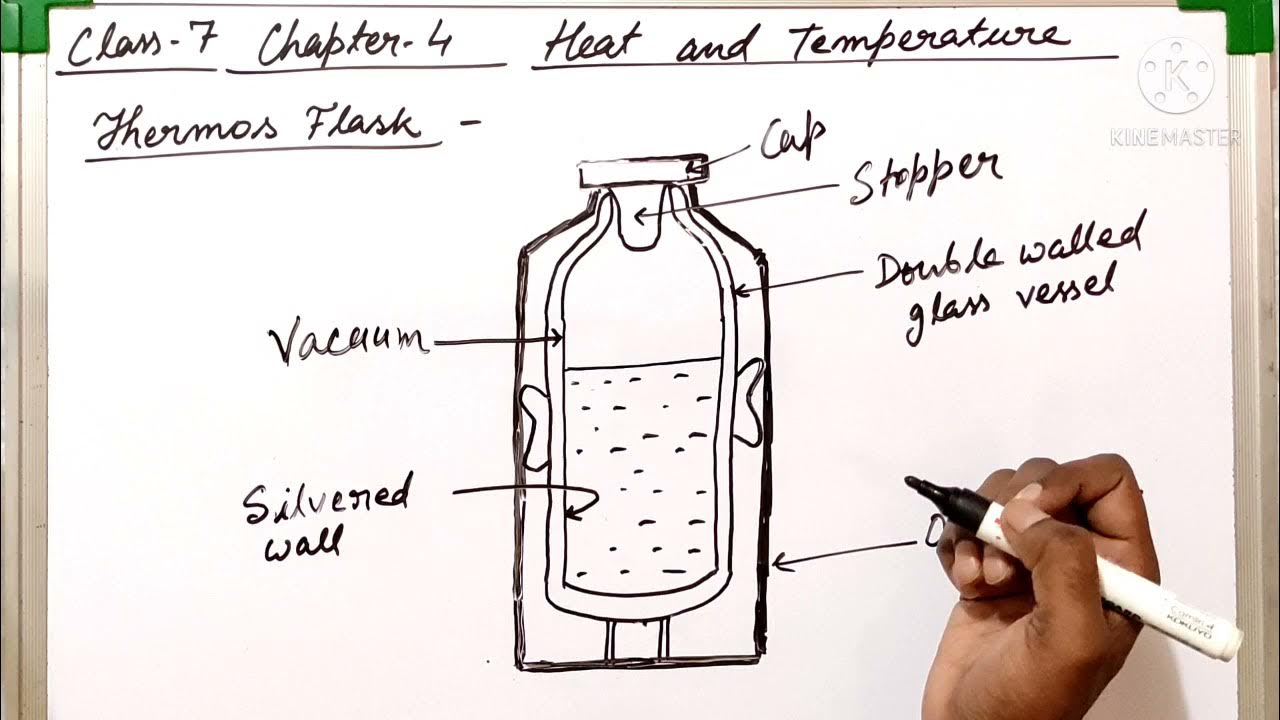 Class-7 Chapter-4 Heat and Temperature
Thermos Flask -
K
KINEMASTER
Cap
Stopper
Double walled
glass vessel
Vacuum
Silvered
wall
KOKUYO